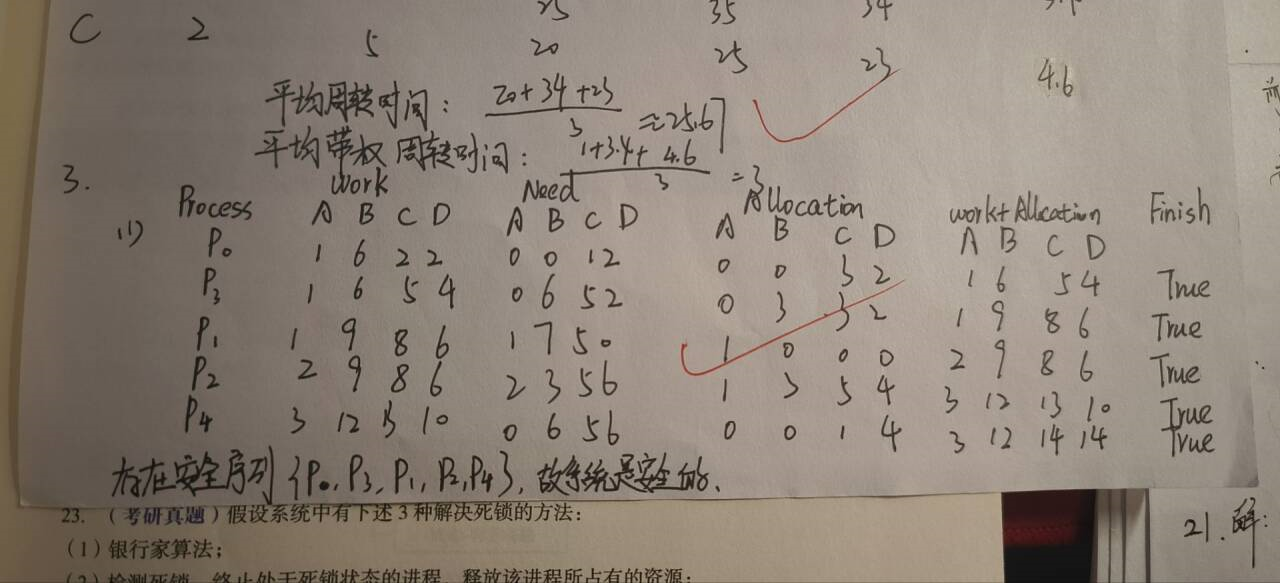 25 35 34
C 2 5 20 25 23 4.6
平均周转时间: (20+34+23)/3 ≈25.67
平均带权周转时间: (1+3.4+4.6)/3 =3
3.
Process Work Need Allocation work+Allocation Finish
(1) A B C D A B C D A B C D A B C D
P0 1 6 2 2 0 0 1 2 0 0 3 2 1 6 5 4 True
P3 1 6 5 4 0 6 5 2 0 3 3 2 1 9 8 6 True
P1 1 9 8 6 1 7 5 0 1 0 0 0 2 9 8 6 True
P2 2 9 8 6 2 3 5 6 1 3 5 4 3 12 13 10 True
P4 3 12 13 10 0 6 5 6 0 0 1 4 3 12 14 14 True
存在安全序列{P0, P3, P1, P2, P4}, 故系统是安全的.
23. (考研真题) 假设系统中有下述3种解决死锁的方法:
(1) 银行家算法;
(2) 检测死锁, 终止处于死锁状态的进程, 释放该进程所占有的资源;
21. 解: